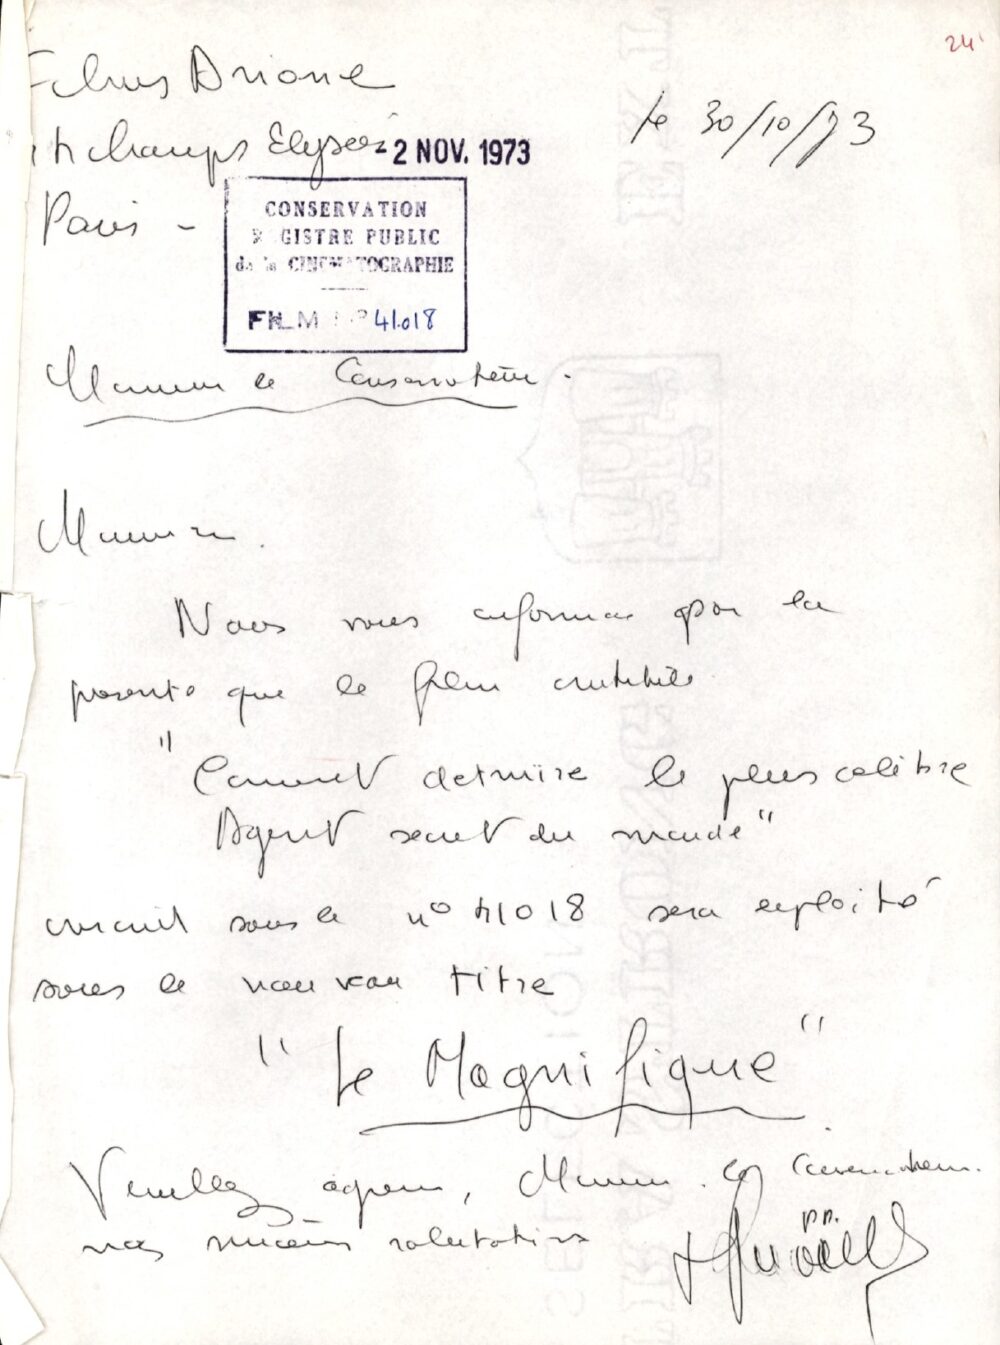 24
Films Ariane
le 30/10/73
44 Champs Elysées
-2 NOV. 1973
Paris -
CONSERVATION
REGISTRE PUBLIC
de la CINEMATOGRAPHIE
FILM N° 41.018
Monsieur le Conservateur.
Monsieur.
Nous vous informons par la
présente que le film intitulé
"Comment detruire le plus celèbre
Agent secret du monde"
inscrit sous le n° 41018 sera exploité
sous le nouveau titre
"Le Magnifique"
Veuillez agréer, Monsieur le Conservateur.
nos sincères salutations
p.p.